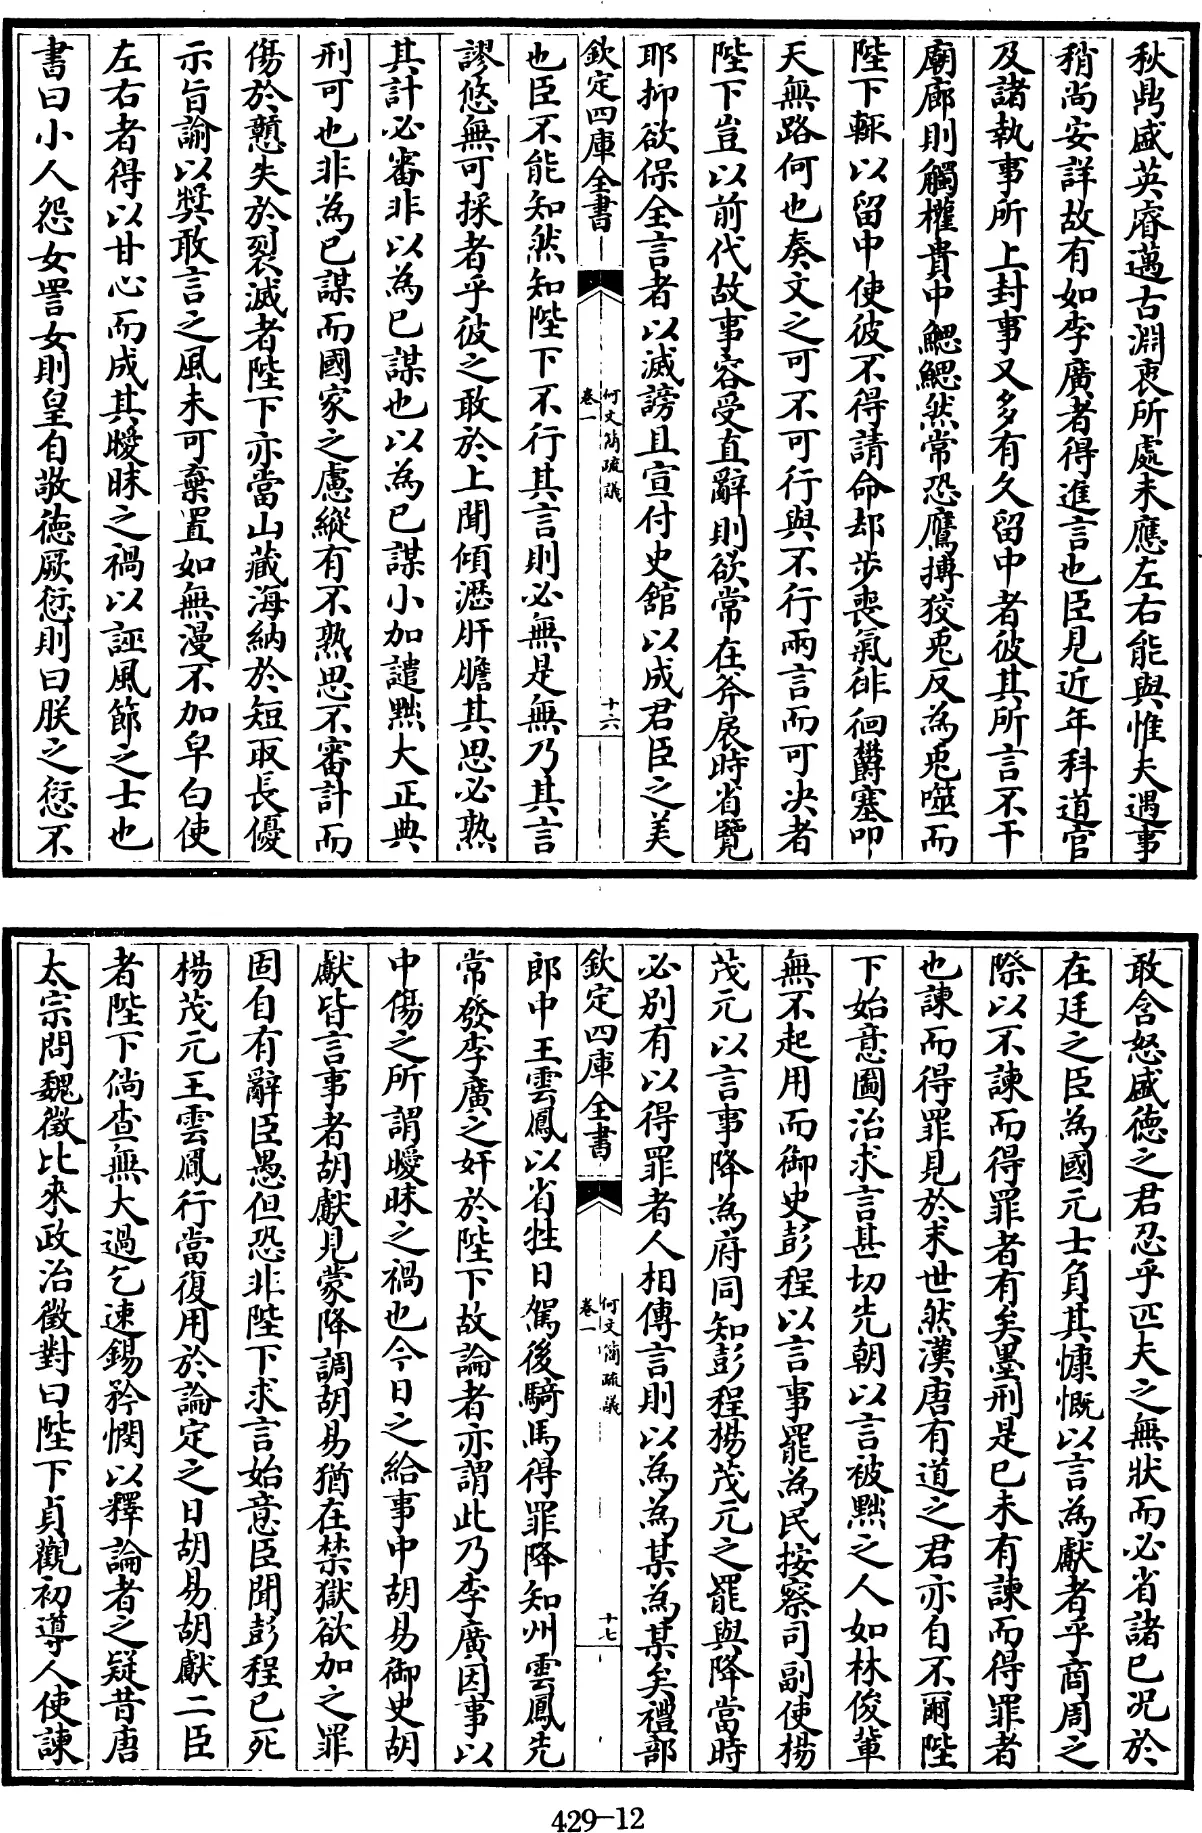 秋鼎盛英睿邁古淵衷所處未應左右能與惟夫遇事
稍尚安詳故有如李廣者得進言也臣見近年科道官
及諸執事所上封事又多有久留中者彼其所言不干
廟廊則觸權貴中鰓鰓然常恐鷹搏狡兎反為兎噬而
陛下輙以留中使彼不得請命却步喪氣徘徊欝塞叩
天無路何也奏文之可不可行與不行兩言而可决者
陛下豈以前代故事容受直辭則欲常在斧扆時省覽
耶抑欲保全言者以滅謗且宣付史館以成君臣之美
欽定四庫全書
何文簡疏議
卷一
十六
也臣不能知然知陛下不行其言則必無是無乃其言
謬悠無可採者乎彼之敢於上聞傾瀝肝膽其思必熟
其計必審非以為已謀也以為已謀小加譴黜大正典
刑可也非為已謀而國家之慮縱有不熟思不審計而
傷於戅失於裂滅者陛下亦當山藏海納於短取長優
示旨諭以奬敢言之風未可棄置如無漫不加皁白使
左右者得以甘心而成其曖昧之禍以誣風節之士也
書曰小人怨女詈女則皇自敬德厥愆則曰朕之愆不
敢含怒盛德之君忍乎匹夫之無狀而必省諸已况於
在廷之臣為國元士負其慷慨以言為獻者乎商周之
際以不諫而得罪者有矣墨刑是已未有諫而得罪者
也諫而得罪見於末世然漢唐有道之君亦自不爾陛
下始意圖治求言甚切先朝以言被黜之人如林俊輩
無不起用而御史彭程以言事罷為民按察司副使楊
茂元以言事降為府同知彭程楊茂元之罷與降當時
必別有以得罪者人相傳言則以為為某為某矣禮部
欽定四庫全書
何文簡疏議
卷一
十七
郎中王雲鳳以省牲日駕後騎馬得罪降知州雲鳳先
常發李廣之奸於陛下故論者亦謂此乃李廣因事以
中傷之所謂曖昧之禍也今日之給事中胡易御史胡
獻皆言事者胡獻見蒙降調胡易猶在禁獄欲加之罪
固自有辭臣愚但恐非陛下求言始意臣聞彭程已死
楊茂元王雲鳳行當復用於論定之日胡易胡獻二臣
者陛下倘查無大過乞速錫矜憫以釋論者之疑昔唐
太宗問魏徵比來政治徵對曰陛下貞觀初導人使諫
429-12